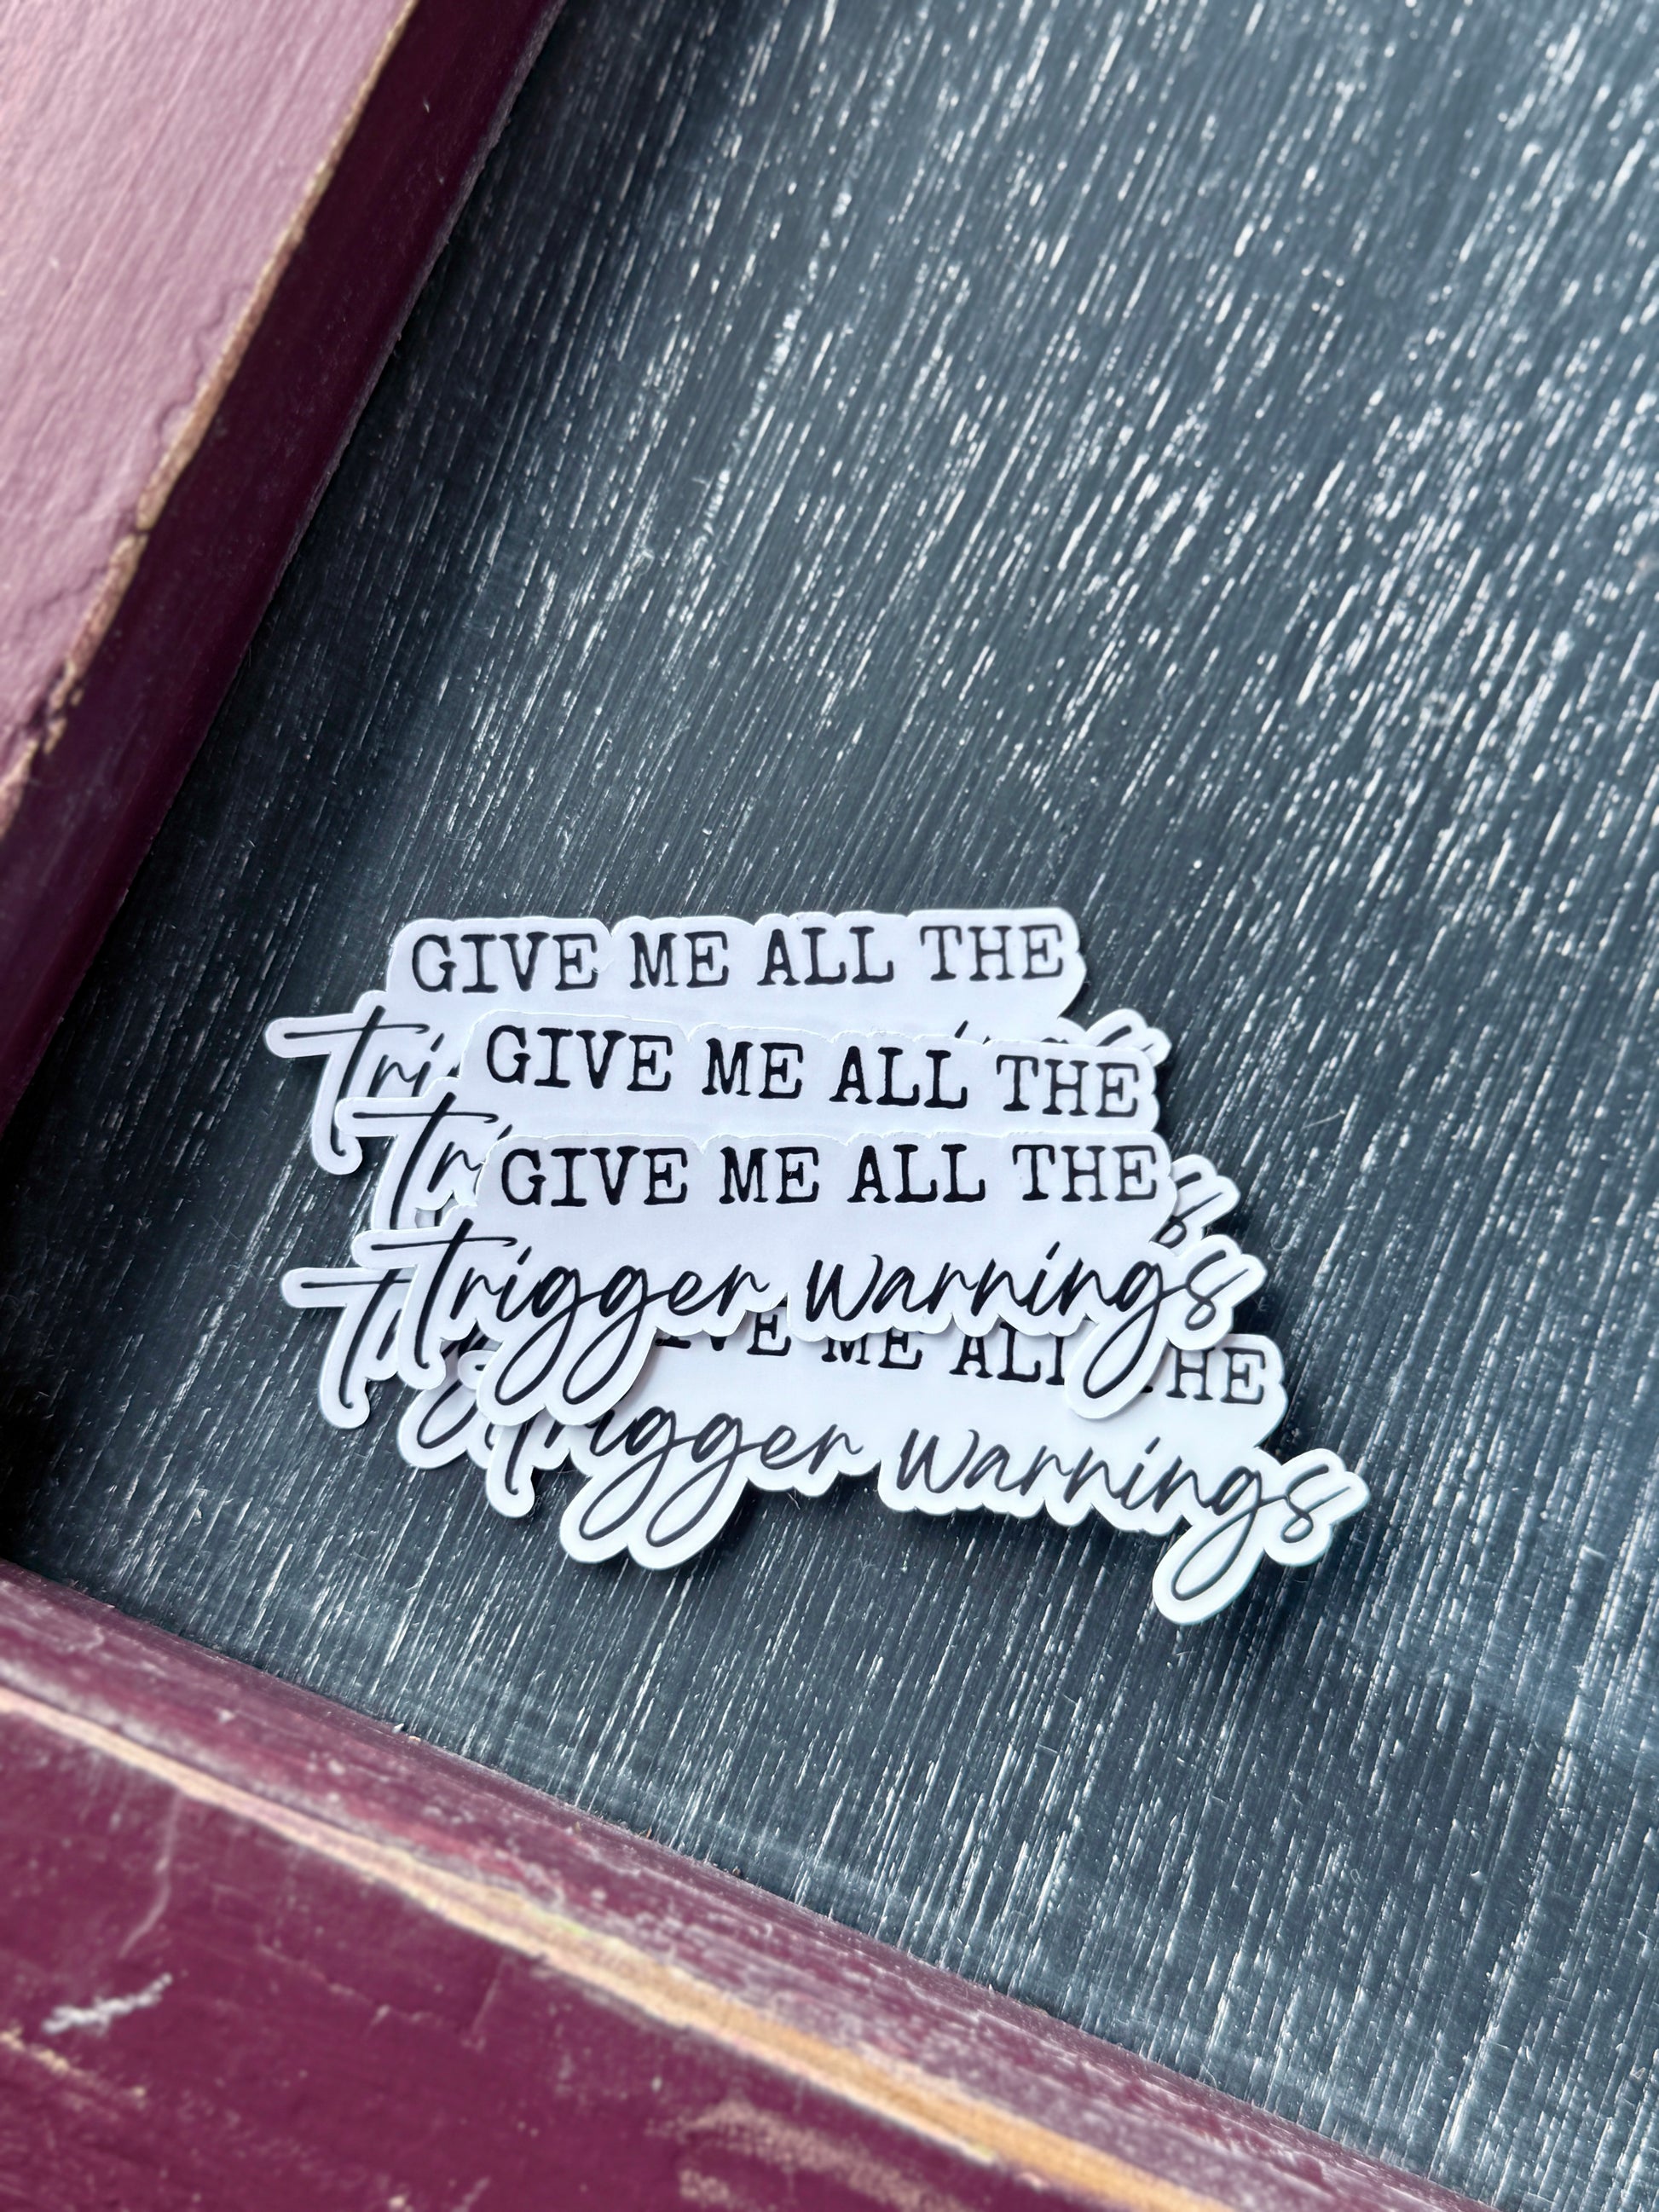 GIVE ME ALL THE
tri
GIVE ME ALL THE
tri
GIVE ME ALL THE
trigger warnings
GIVE ME ALL THE
trigger warnings